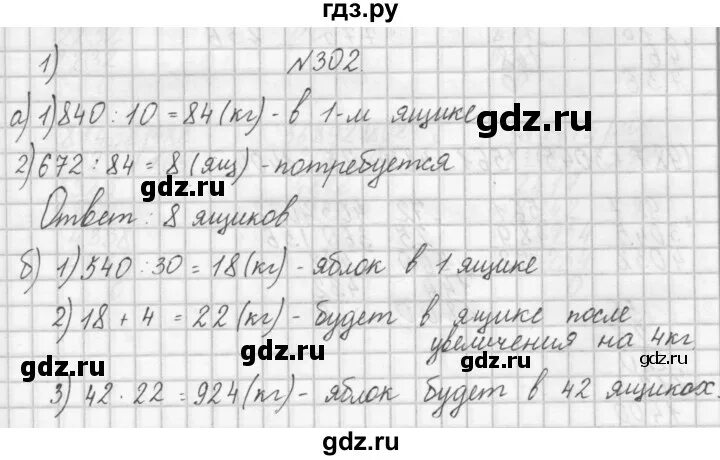 гдз.ру
1) №302.
а) 1) 840 : 10 = 84 (кг) - в 1-м ящике
gdz.ru gdz.ru
2) 672 : 84 = 8 (ящ) - потребуется
gdz.ru
Ответ : 8 ящиков
gdz.ru
б) 1) 540 : 30 = 18 (кг) - яблок в 1 ящике
2) 18 + 4 = 22 (кг) - будет в ящике после
увеличения на 4кг
gdz.ru gdz.ru
3) 42 · 22 = 924 (кг) - яблок будет в 42 ящиках.
gdz.ru